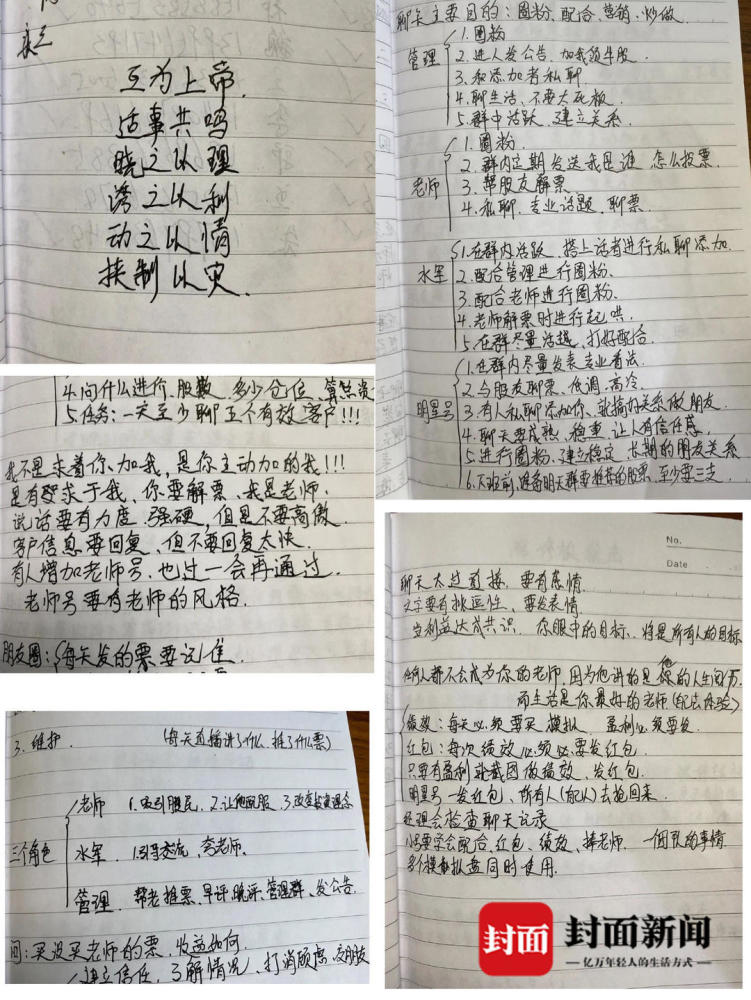 互为上帝.
适事共鸣
晓之以理
诱之以利
动之以情
挟制以灾.
4.问什么进价、股数、多少仓位、算然资
5.任务:一天至少聊五个有效客户!!!
我不是求着你加我,是你主动加的我!!!
是有求于我、你要解票、我是老师.
说话要有力度、强硬,但是不要高傲.
客户信息要回复、但不要回复太快.
有人增加老师号、也过一会再通过.
老师号要有老师的风格.
朋友圈:每天发的票要记住
3. 维护. (每天直播讲了什么、推了什么票)
三个角色
老师 1.吸引股民、2.让他配服、3.改变投资理念
水军 1.引导交流、夸老师.
管理 帮老推票、早评、晚评、管理群、发公告.
问:买没买老师的票、收益如何
建立信任、了解情况、打消顾虑、交朋友
聊天主要目的:圈粉、配合、营销、炒做.
管理
1.圈粉
2.进人发公告、加我领牛股.
3.和添加者私聊.
4.聊生活、不要太死板.
5.群中活跃、建立关系.
老师
1.圈粉
2.群内定期发送我是谁 怎么投票.
3.帮股友解票
4.私聊、专业话题、聊票.
水军
1.在群内活跃、搭上话者进行私聊添加.
2.配合管理进行圈粉、
3.配合老师进行圈粉.
4.老师解票时进行起哄.
5.在群尽量活跃、打好配合.
明星号
1.在群内尽量发表专业看法.
2.与股友聊票、低调、高冷.
3.有人私聊添加你、就搞好关系做朋友.
4.聊天要成熟、稳重、让人有信任感.
5.进行圈粉、建立稳定、长期的朋友关系
6.下班前,准备明天群要推荐的股票,至少要三支.
No.
Date
聊天太过直接、要有感情.
文字要有挑逗性、要发表情
当利益达成共识、你眼中的目标、将是所有人的目标
任何人都不会成为你的老师,因为他讲的是他的人生阅历.
而生活是你最好的老师(配去体验)
绩效:每天必须要买模拟 盈利必须要发.
红包:每次绩效必须必要发红包.
只要有盈利就截图做绩效、发红包.
明星号一发红包、所有人(配以)去抢回来.
经理会检查聊天记录
小号要学会配合、红包、绩效、捧老师. 一個团队的事情
多个模拟盘同时使用.
封面
封面新闻
—亿万年轻人的生活方式—